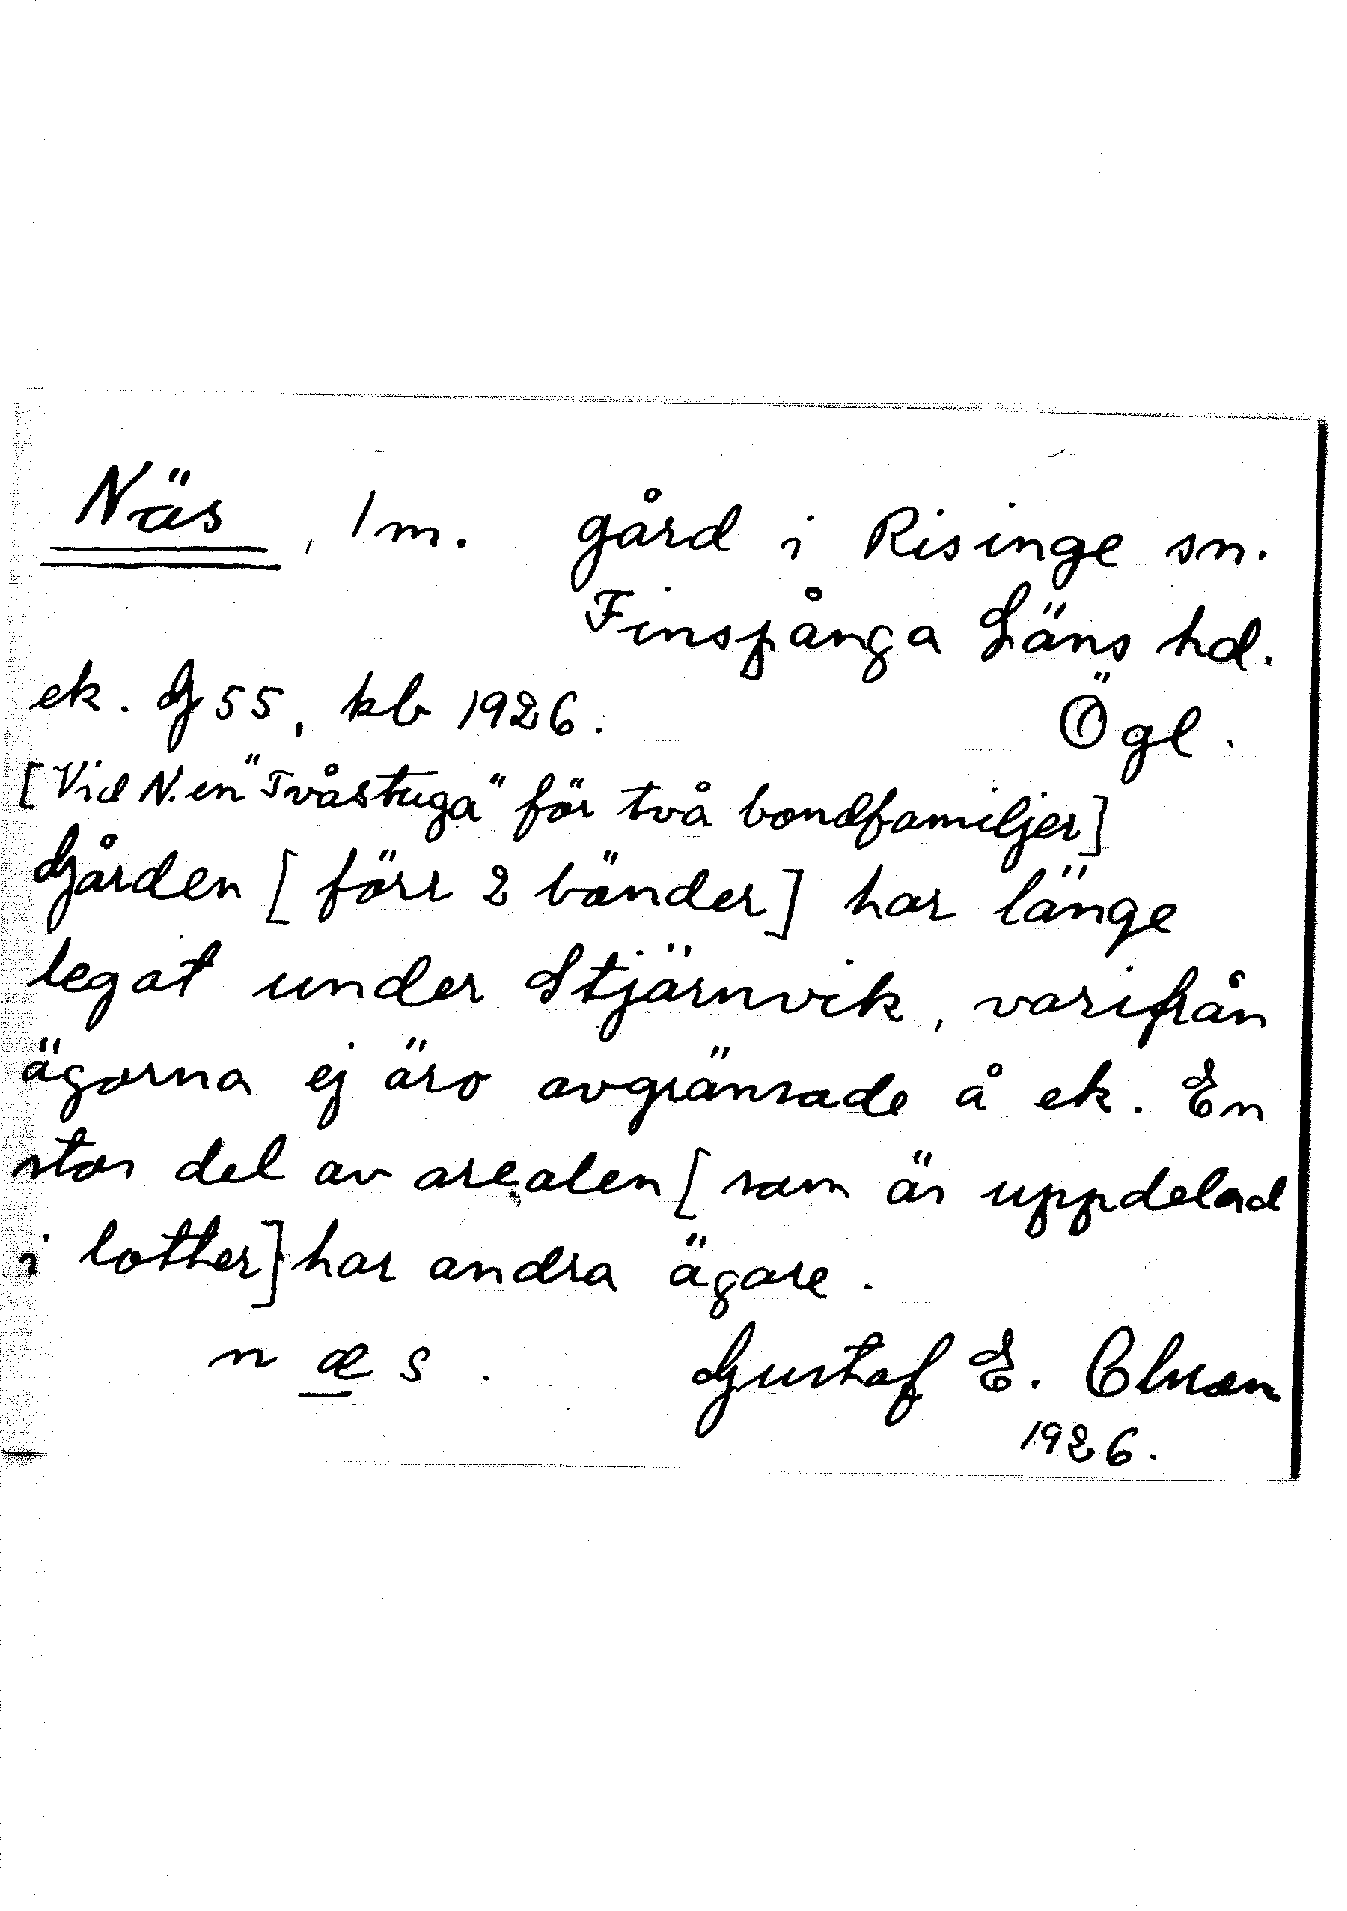 Näs, 1 m. gård i Risinge sn.
Finspånga Läns hd.
ek. G 55, kb 1926. Ögl.
[Vid N. en "Tvåstuga" för två bondfamiljer]
Gården [förr 2 bönder] har länge
legat under Stjärnvik, varifrån
ägorna ej äro avgränsade å ek. En
stor del av arealen [som är uppdelad
i lotter] har andra ägare.
næs. Gustaf E.
1926.